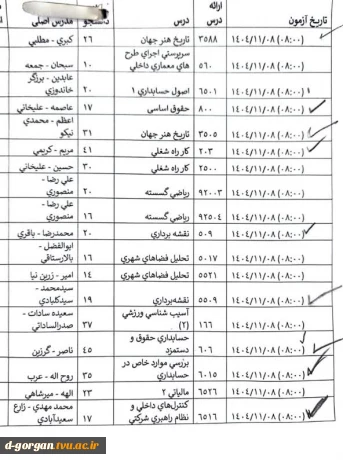 تاریخ آزمون | ارائه درس | درس | دانشجو | مدرس اصلی
۱۴۰۴/۱۱/۰۸ (۰۸:۰۰) | ۳۵۸۸ | تاریخ هنر جهان | ۲۶ | کبری - مطلبی
۱۴۰۴/۱۱/۰۸ (۰۸:۰۰) | ۵۶۰ | سرپرستی اجرای طرح های معماری داخلی | ۱۰ | سبحان - جمعه
۱۴۰۴/۱۱/۰۸ (۰۸:۰۰) | ۶۵۰۱ | اصول حسابداری ۱ | ۲۰ | عابدین - برزگر خاندوزی
۱۴۰۴/۱۱/۰۸ (۰۸:۰۰) | ۸۰۰ | حقوق اساسی | ۱۷ | عاصمه - علیخانی
۱۴۰۴/۱۱/۰۸ (۰۸:۰۰) | ۳۵۰۵ | تاریخ هنر جهان | ۳۱ | اعظم - محمدی نیکو
۱۴۰۴/۱۱/۰۸ (۰۸:۰۰) | ۲۰۳ | کار راه شغلی | ۴۱ | مریم - کریمی
۱۴۰۴/۱۱/۰۸ (۰۸:۰۰) | ۲۵۰۰ | کار راه شغلی | ۳۰ | حسین - علیخانی
۱۴۰۴/۱۱/۰۸ (۰۸:۰۰) | ۹۲۰۰۳ | ریاضی گسسته | ۲۰ | علی رضا - منصوری
۱۴۰۴/۱۱/۰۸ (۰۸:۰۰) | ۹۲۵۰۴ | ریاضی گسسته | ۱۶ | علی رضا - منصوری
۱۴۰۴/۱۱/۰۸ (۰۸:۰۰) | ۵۰۹ | نقشه برداری | ۲۰ | محمدرضا - باقری
۱۴۰۴/۱۱/۰۸ (۰۸:۰۰) | ۵۰۱۷ | تحلیل فضاهای شهری | ۱۶ | ابوالفضل - بالارستاقی
۱۴۰۴/۱۱/۰۸ (۰۸:۰۰) | ۵۵۲۱ | تحلیل فضاهای شهری | ۱۴ | امیر - زرین نیا
۱۴۰۴/۱۱/۰۸ (۰۸:۰۰) | ۵۵۰۹ | نقشه‌برداری | ۱۹ | سیدمحمد - سیدکلبادی
۱۴۰۴/۱۱/۰۸ (۰۸:۰۰) | ۱۶۶ | آسیب شناسی ورزشی (۲) | ۳۷ | سعیده سادات - صدرالساداتی
۱۴۰۴/۱۱/۰۸ (۰۸:۰۰) | ۶۰۶ | حسابداری حقوق و دستمزد | ۴۵ | ناصر - گرزین
۱۴۰۴/۱۱/۰۸ (۰۸:۰۰) | ۶۰۱۵ | بررسی موارد خاص در حسابداری | ۳۵ | روح اله - عرب
۱۴۰۴/۱۱/۰۸ (۰۸:۰۰) | ۶۵۲۶ | مالیاتی ۲ | ۲۳ | الهه - میرشاهی
۱۴۰۴/۱۱/۰۸ (۰۸:۰۰) | ۶۵۱۶ | کنترل‌های داخلی و نظام راهبری شرکتی | ۱۷ | محمد مهدی - زارع سعیدآبادی
d-gorgan.tvu.ac.ir